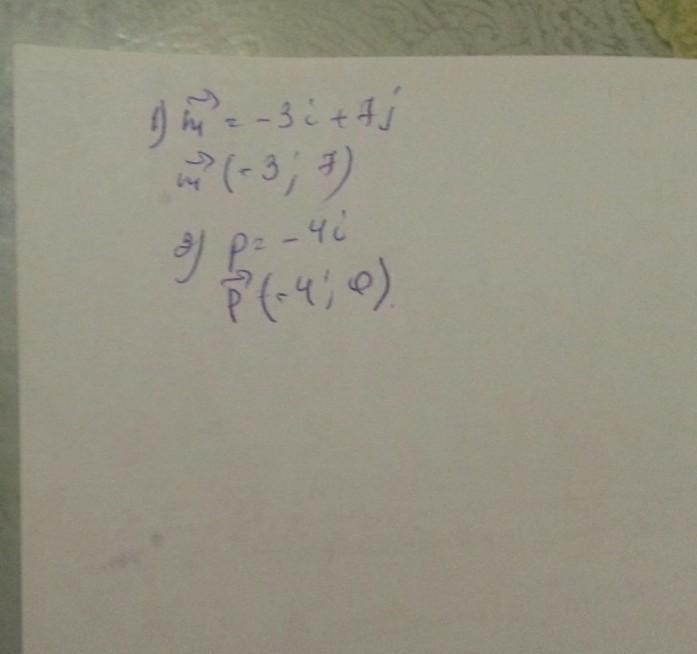 1) m⃗ = -3i + 7j
m⃗ (-3; 7)
2) p = -4i
p⃗ (-4; 0).